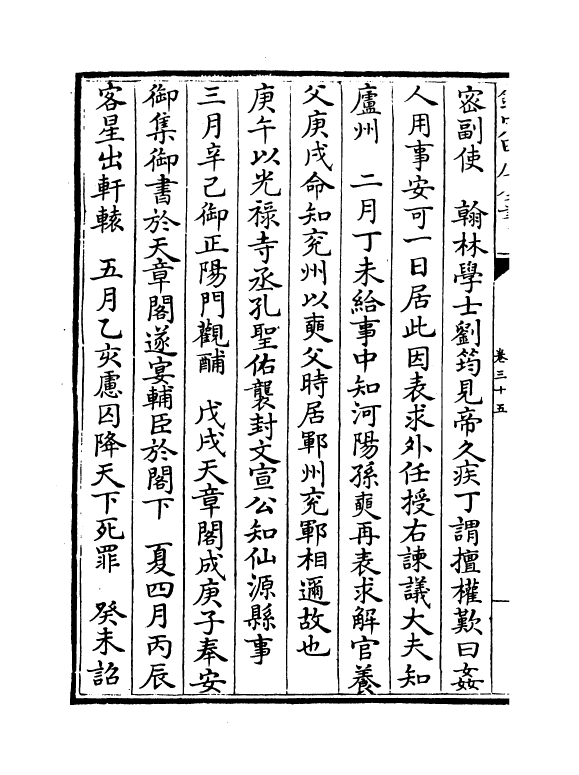 卷三十五
密副使　翰林學士劉筠見帝久疾丁謂擅權歎曰姦
人用事安可一日居此因表求外任授右諫議大夫知
廬州　二月丁未給事中知河陽孫奭再表求解官養
父庚戌命知兖州以奭父時居鄆州兖鄆相邇故也
庚午以光祿寺丞孔聖佑襲封文宣公知仙源縣事
三月辛己御正陽門觀酺　戊戌天章閣成庚子奉安
御集御書於天章閣遂宴輔臣於閣下　夏四月丙辰
客星出軒轅　五月乙亥慮囚降天下死罪　癸未詔